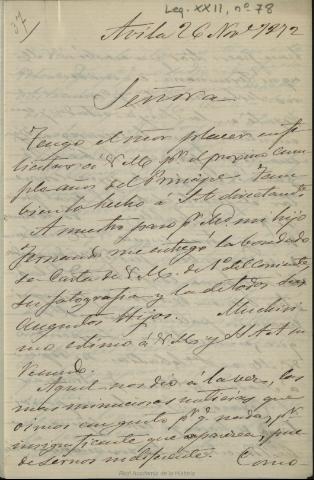 37)
Leg. XXII, nº 78
Avila 26 Nov.e 1872
Señora
Tengo el mor placer en fe
licitar á V M pr el proximo cum
ple años del Principe. Tam
bien lo hecho á S A directamte
A nuestro paso pr Md mi hijo
Fernando me entregó la bondado
sa Carta de V M. de 1º del Corriente
su fotografia y la de todos sus
Augustos Hijos. Muchisi
mo estimo á V M y S S A A su
recuerdo.
Aquel nos dió á la vez, las
mas minuciosas noticias que
oimos con gusto pr q. nada, pr
insignificante que aparezca, pue
de sernos indiferente. Como
Real Academia de la Historia